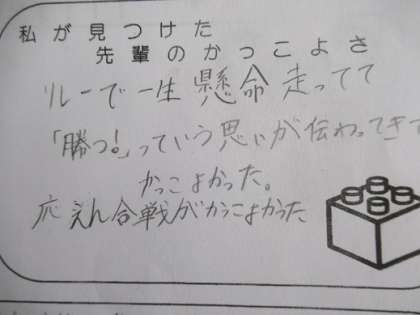 私が見つけた
先輩のかっこよさ
リレーで一生懸命走ってて
「勝つ!」っていう思いが伝わってきて
かっこよかった。
応えん合戦がかっこよかった